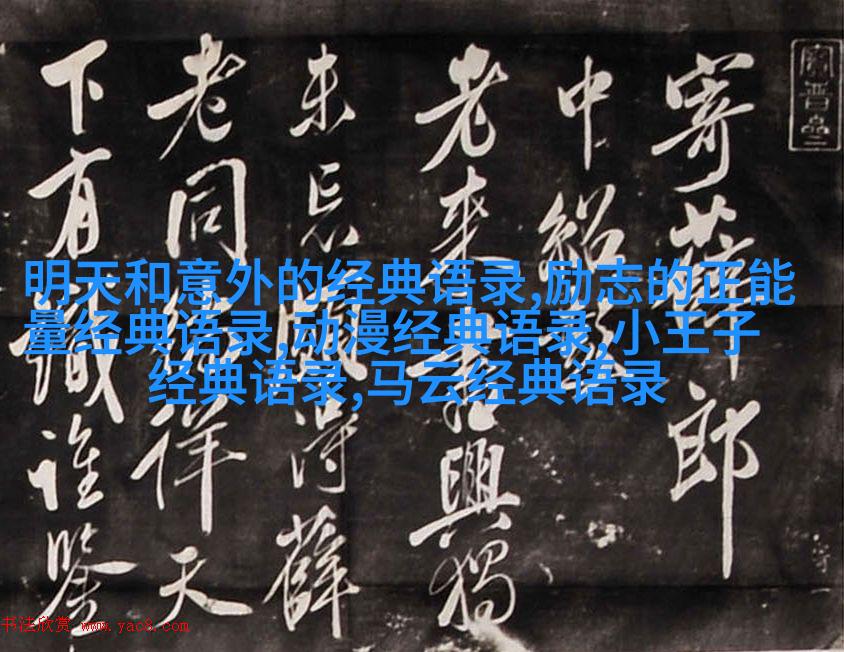 寄薛郎
中紹彭
老來書興獨
未忘頗得薛
老同徜徉天
下有識誰鑒
明天和意外的经典语录,励志的正能
量经典语录,动漫经典语录,小王子
经典语录,马云经典语录
书法欣赏 www.yac8.com